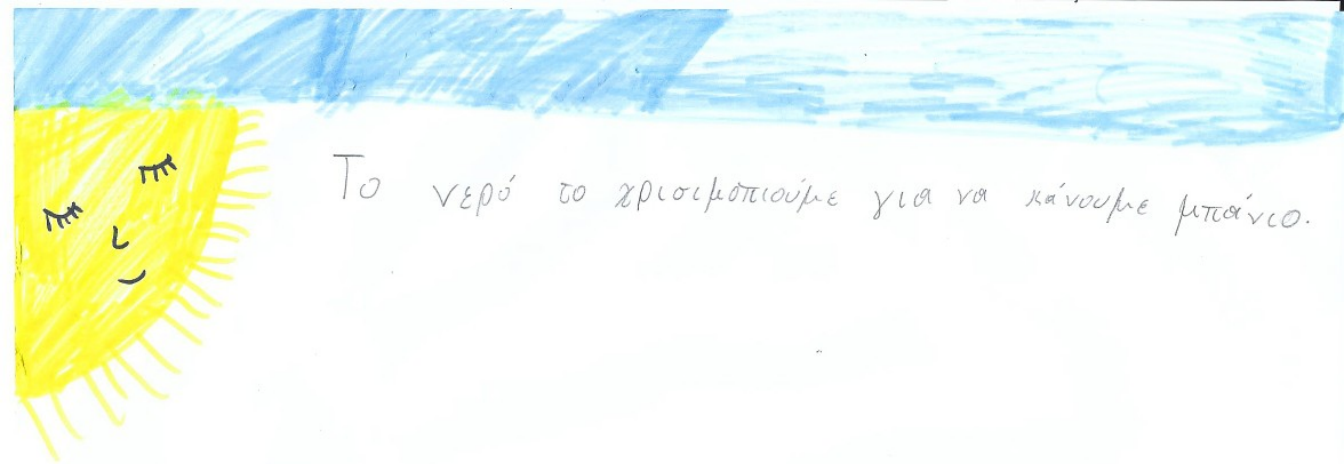 Το νερό το χρισιμοπιούμε για να κάνουμε μπάνιο.